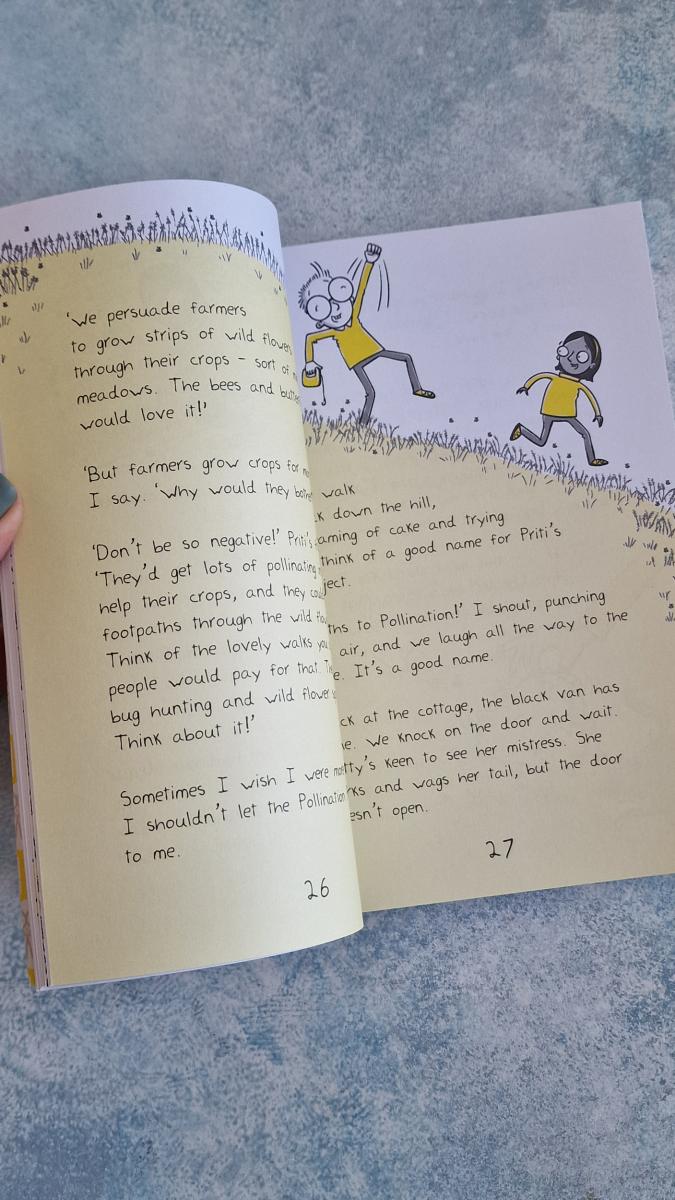 'We persuade farmers
to grow strips of wild
through their crops - sort of
meadows. The bees and
would love it!'
'But farmers grow crops for
I say. 'Why would they
'Don't be so negative!' Priti's
'They'd get lots of pollinating
help their crops, and they
footpaths through the wild
Think of the lovely walks
people would pay for that.
bug hunting and wild
Think about it!'
Sometimes I wish I were
I shouldn't let the Pollination
to me.
26
walk
down the hill,
of cake and trying
think of a good name for Priti's
to Pollination!' I shout, punching
air, and we laugh all the way to the
It's a good name.
at the cottage, the black van has
We knock on the door and wait.
keen to see her mistress. She
and wags her tail, but the door
open.
27